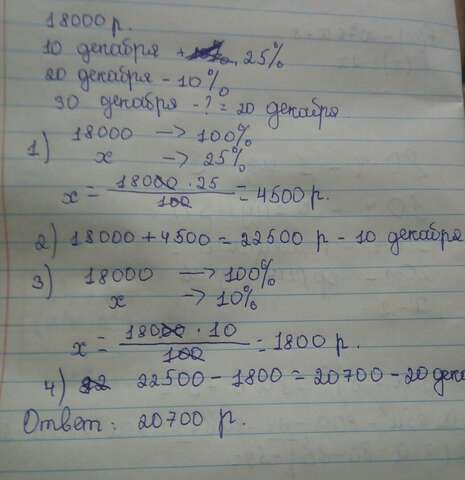 18000 р.
10 декабря + 25%
20 декабря - 10%
30 декабря - ? = 20 декабря
1) 18000 —> 100%
x —> 25%
x = 18000 · 25 / 100 = 4500 р.
2) 18000 + 4500 = 22500 р - 10 декабря
3) 18000 —> 100%
x —> 10%
x = 18000 · 10 / 100 = 1800 р.
4) 22500 - 1800 = 20700 - 20 дека
Ответ: 20700 р.